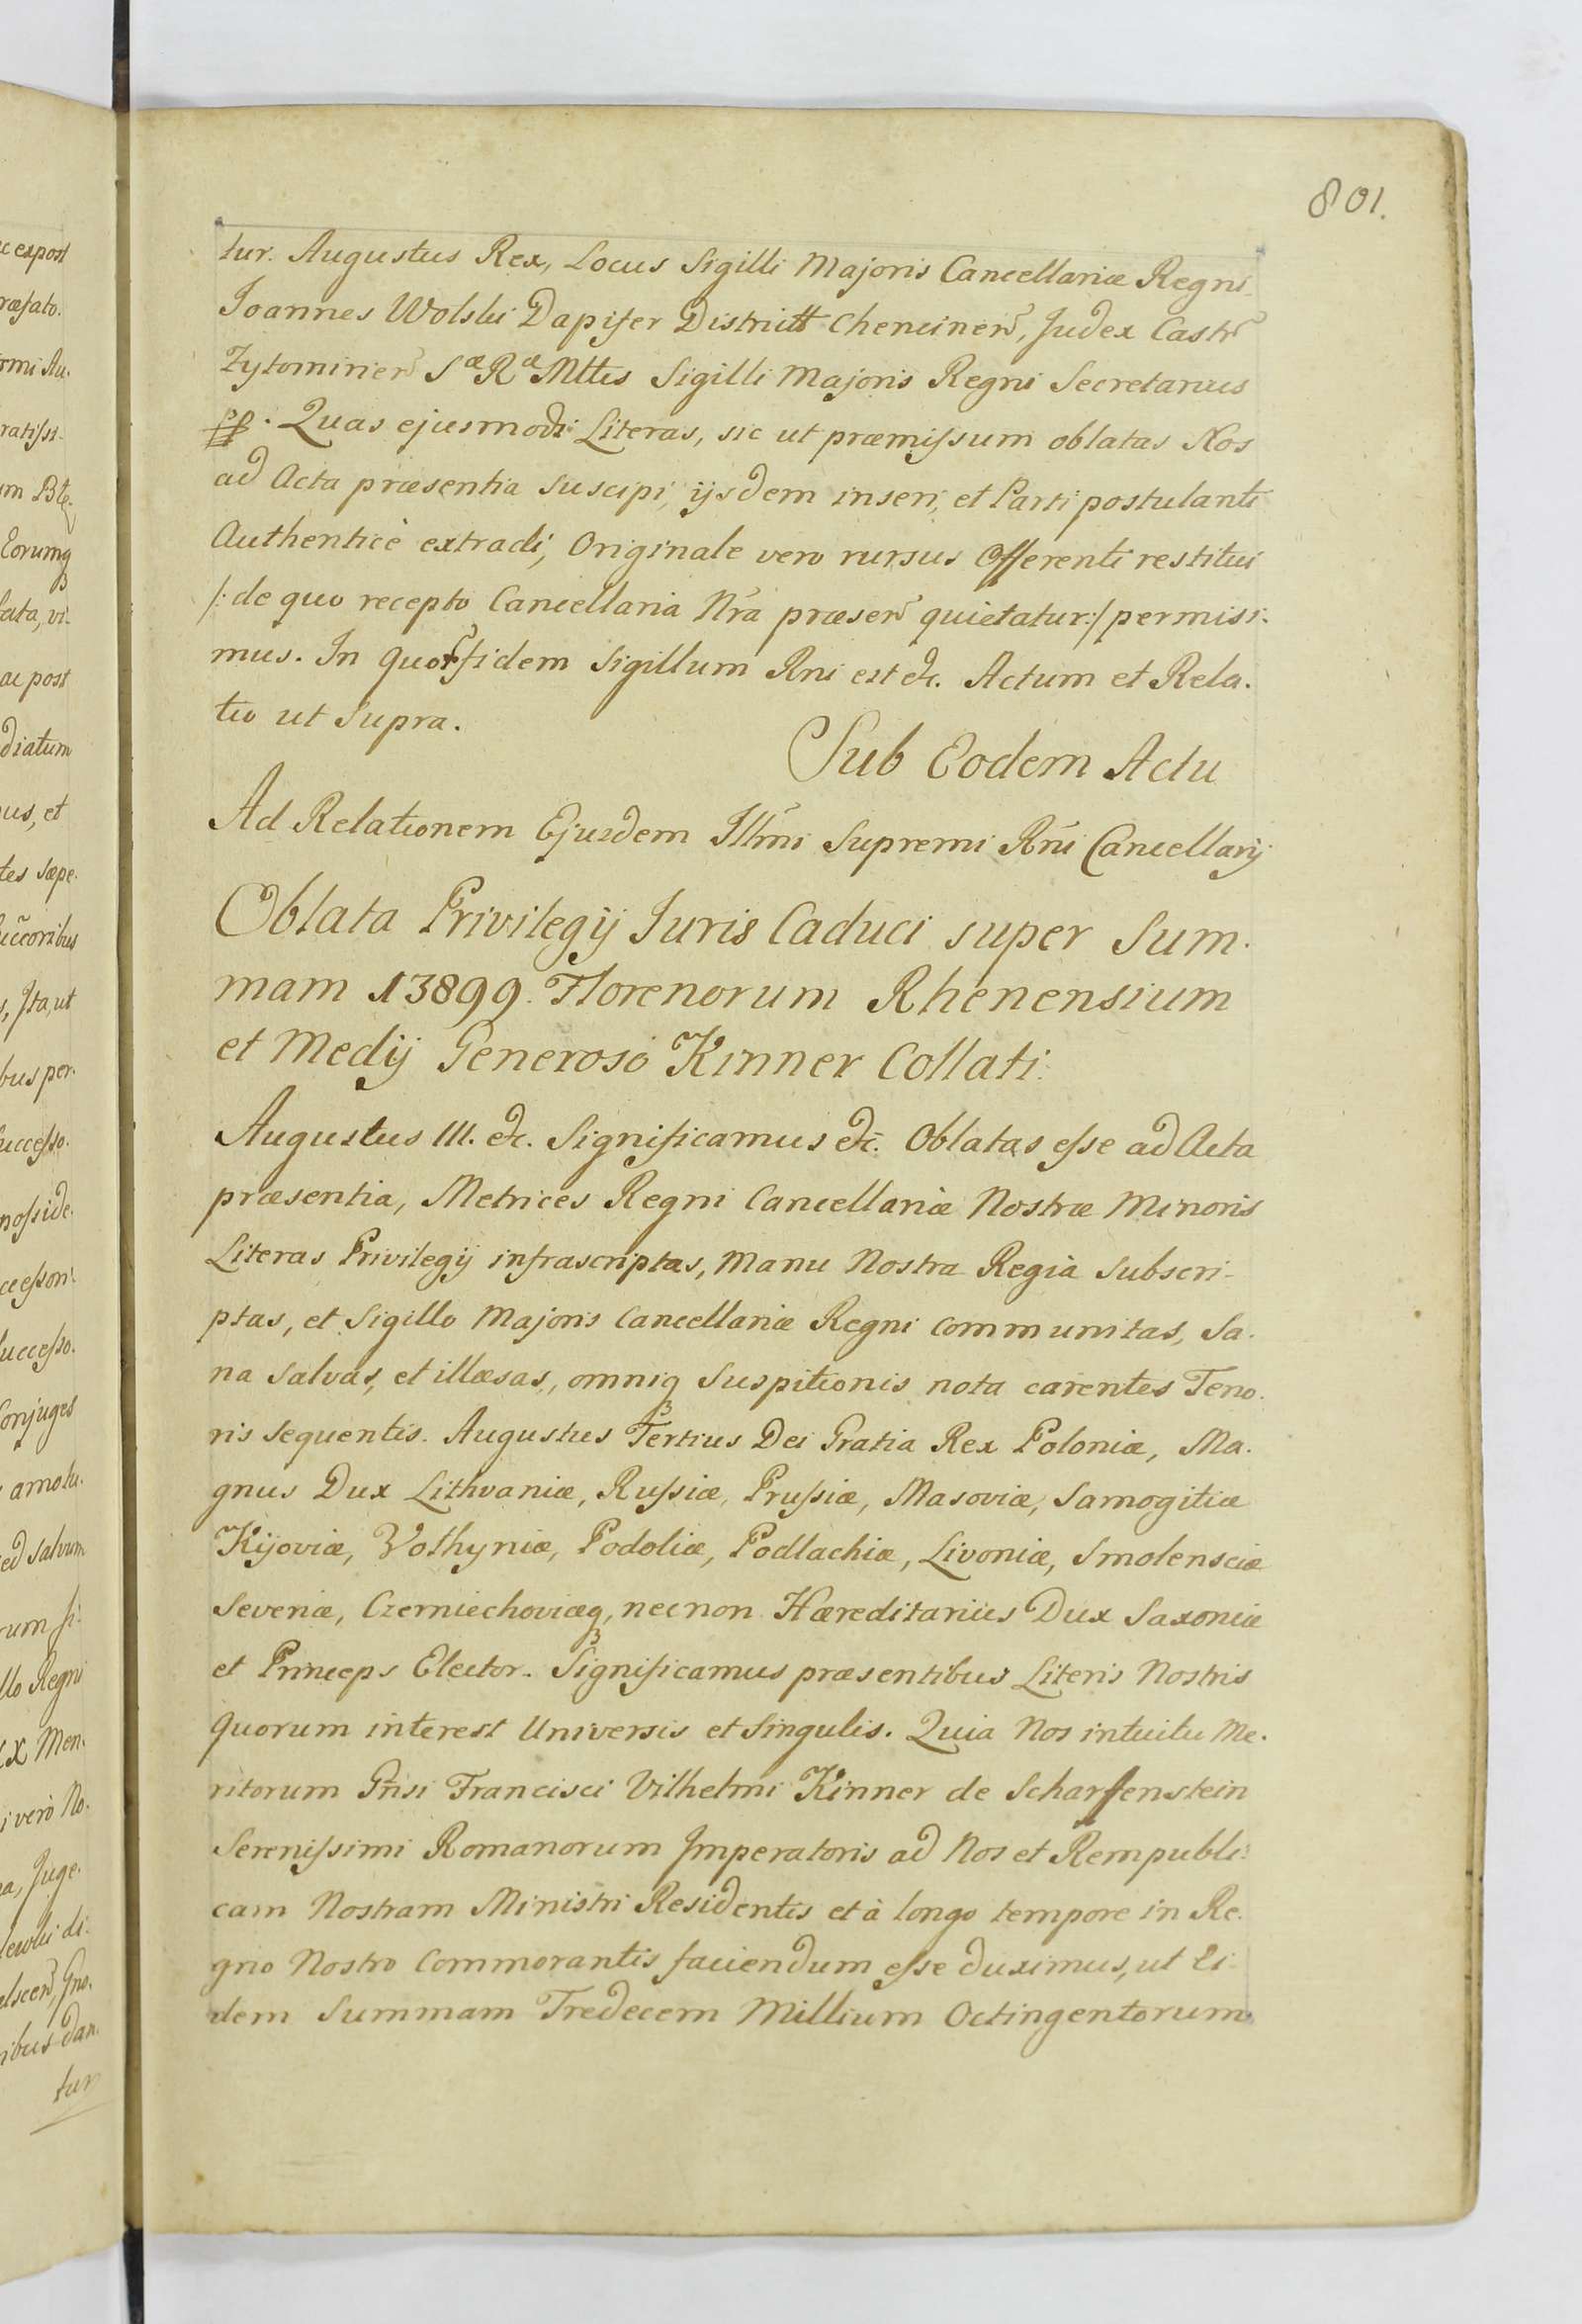 801.
tur. Augustus Rex, Locus Sigilli Majoris Cancellariæ Regni
Joannes Wolski Dapifer District Chencinen, Judex Castr
Zytominien Sæ Ræ Mttis Sigilli Majoris Regni Secretarius
pp. Quas ejusmodi Literas, sic ut præmissum oblatas Nos
ad Acta præsentia suscipi, ijsdem inseri, et Parti postulanti
Authenticè extradi, Originale vero rursus Offerenti restitui
/: de quo recepto Cancellaria Nra præsen quietatur :/ permisi-
mus. In quor fidem Sigillum Rni est etc. Actum et Rela-
tio ut Supra.
Sub Eodem Actu
Ad Relationem Ejusdem Illmi Supremi Rni Cancellarij
Oblata Privilegij Juris Caduci super Sum-
mam 13899. Florenorum Rhenensium
et Medij Generoso Kinner Collati.
Augustus III. etc. Significamus etc. Oblatas esse ad Acta
præsentia, Metrices Regni Cancellariæ Nostræ Minoris
Literas Privilegij infrascriptas, Manu Nostra Regia Subscri-
ptas, et Sigillo Majoris Cancellariæ Regni communitas, Sa-
na salvas, et illæsas, omniq3 Suspitionis nota carentes Teno-
ris sequentis. Augustus Tertius Dei Gratia Rex Poloniæ, Ma-
gnus Dux Lithvaniæ, Russiæ, Prussiæ, Masoviæ, Samogitiæ
Kijoviæ, Volhyniæ, Podoliæ, Podlachiæ, Livoniæ, Smolensciæ
Severiæ, Czerniechoviæq3, necnon Hæreditarius Dux Saxoniæ
et Princeps Elector. Significamus præsentibus Literis Nostris
quorum interest Universis et Singulis. Quia Nos intuitu Me-
ritorum Gnsi Francisci Vilhelmi Kinner de Scharffenstein
Serenissimi Romanorum Imperatoris ad Nos et Rempubli-
cam Nostram Ministri Residentis et à longo tempore in Re-
gno Nostro Commorantis faciendum esse duximus, ut Ei-
dem Summam Tredecem Millium Octingentorum